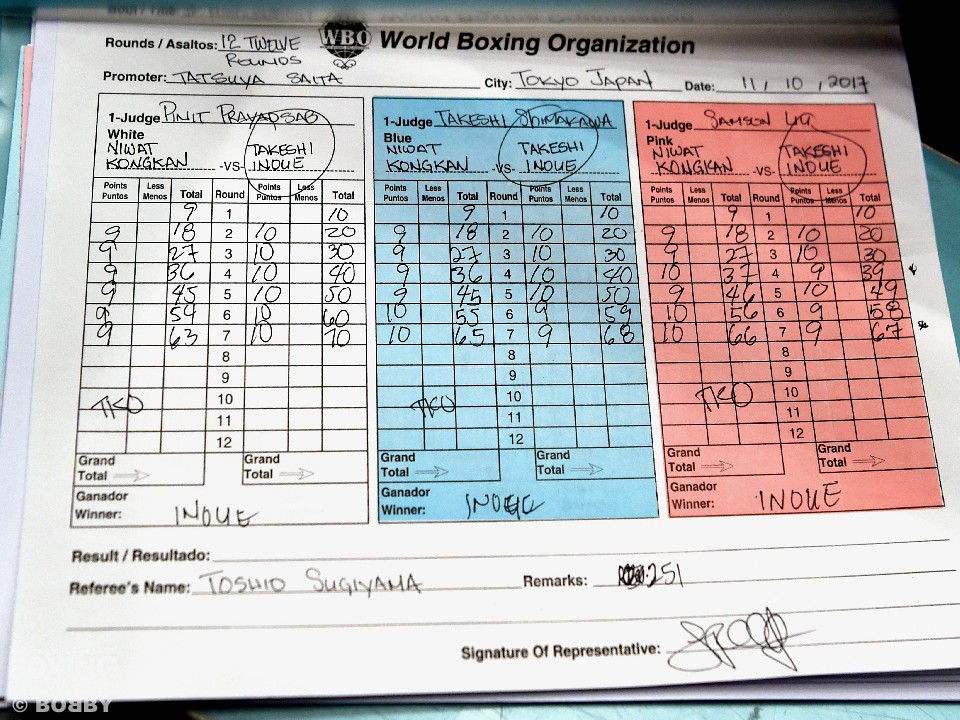 Rounds / Asaltos: 12 TWELVE ROUNDS
WBO World Boxing Organization
Promoter: TATSUYA SAITA City: TOKYO JAPAN Date: 11, 10, 2017
1-Judge PINIT PRAYADSAB
White
NIWAT KONGKAN -VS- TAKESHI INOUE
Points Puntos Less Menos Total Round Points Puntos Less Menos Total
9 1 10
9 18 2 10 20
9 27 3 10 30
9 36 4 10 40
9 45 5 10 50
9 54 6 10 60
9 63 7 10 70
8
9
TKO 10
11
12
Grand Total Grand Total
Ganador
Winner: INOUE
1-Judge TAKESHI SHIMAKAWA
Blue
NIWAT KONGKAN -VS- TAKESHI INOUE
Points Puntos Less Menos Total Round Points Puntos Less Menos Total
9 1 10
9 18 2 10 20
9 27 3 10 30
9 36 4 10 40
9 45 5 10 50
10 55 6 9 59
10 65 7 9 68
8
9
TKO 10
11
12
Grand Total Grand Total
Ganador
Winner: INOUE
1-Judge SAMSON
Pink
NIWAT KONGKAN -VS- TAKESHI INOUE
Points Puntos Less Menos Total Round Points Puntos Less Menos Total
9 1 10
9 18 2 10 20
9 27 3 10 30
10 37 4 9 39
9 46 5 10 49
10 56 6 9 58
10 66 7 9 67
8
9
TKO 10
11
12
Grand Total Grand Total
Ganador
Winner: INOUE
Result / Resultado:
Referee's Name: TOSHIO SUGIYAMA Remarks: 251
Signature Of Representative:
© BOBBY